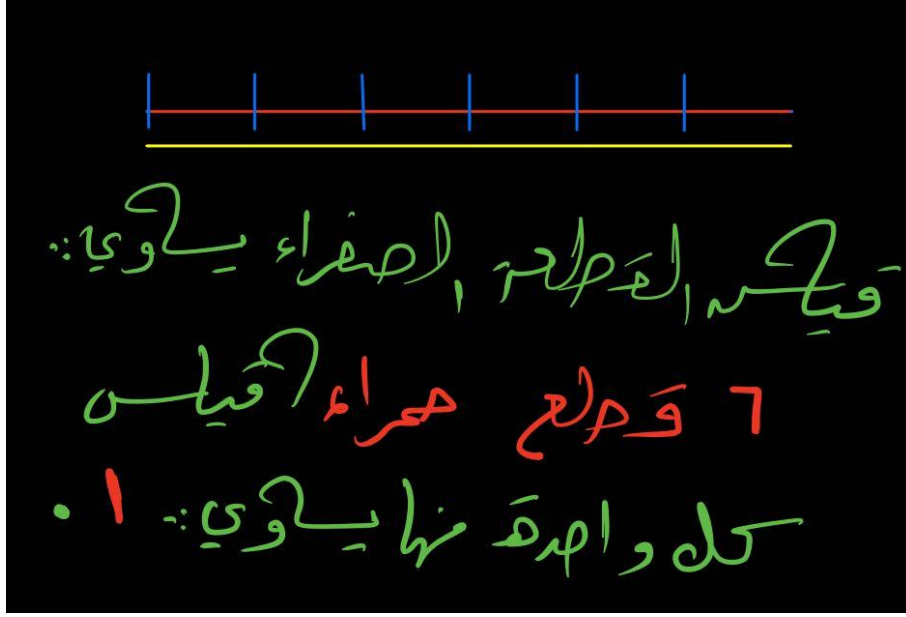 قياس القطعة الصفراء يساوي:
٦ قطع حمراء قياس
كل واحدة منها يساوي: ١.